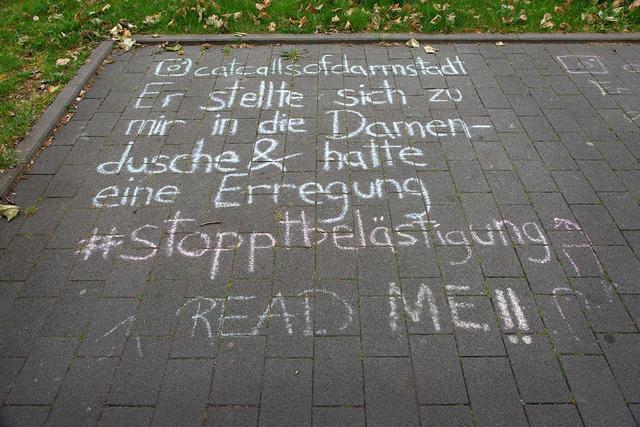 catcallsofdarmstadt
Er stellte sich zu
mir in die Damen-
dusche & hatte
eine Erregung
#Stopptbelästigung
READ ME!!